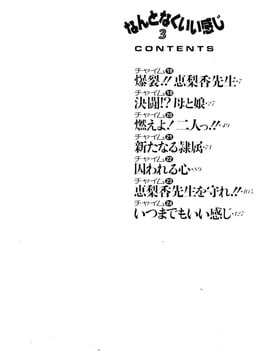 なんとなくいい感じ
3
CONTENTS
チャイム⑱
爆裂!!恵梨香先生・7
チャイム⑲
決闘!?母と娘・27
チャイム⑳
燃えよ!二人っ!!・49
チャイム㉑
新たなる隷属・71
チャイム㉒
囚われる心・89
チャイム㉓
恵梨香先生を守れ!!・105
チャイム㉔
いつまでもいい感じ・127